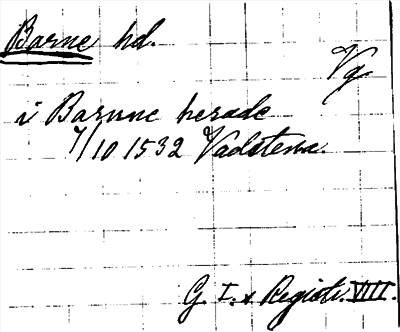 Barne hd.
Vg
i Barune herade
7/10 1532 Vadstena.
G. I. s Registr. VIII.